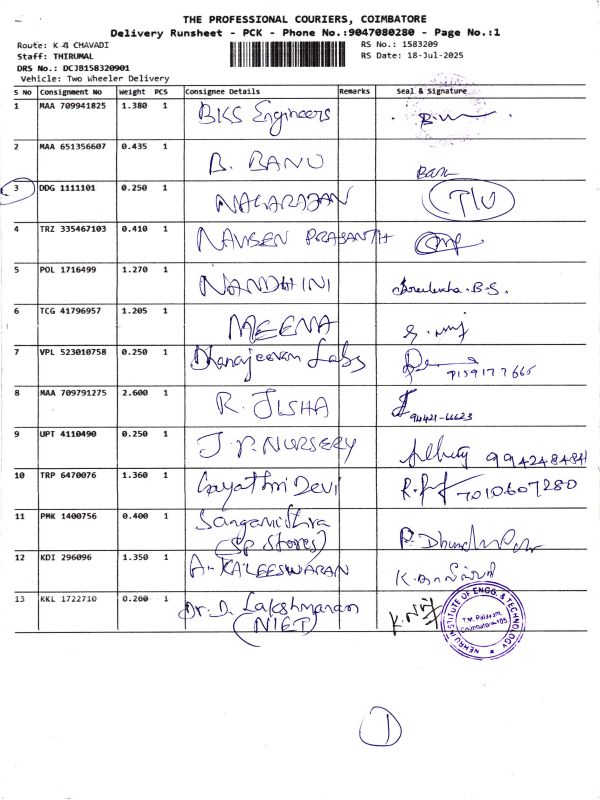 THE PROFESSIONAL COURIERS, COIMBATORE
Delivery Runsheet - PCK - Phone No.:9047080280 - Page No.:1
Route: K G CHAVADI RS No.: 1583209
Staff: THIRUMAL RS Date: 18-Jul-2025
DRS No.: DCJB158320901
Vehicle: Two Wheeler Delivery
S No Consignment No Weight PCS Consignee Details Remarks Seal & Signature
1 MAA 709941825 1.380 1 BKS Engineers
2 MAA 651356607 0.435 1 B. BANU Banu
3 DDG 1111101 0.250 1 NAGARAJAN
4 TRZ 335467103 0.410 1 NAVEEN PRASANTH
5 POL 1716499 1.270 1 NANDHINI
6 TCG 41796957 1.205 1 MEENA
7 VPL 523010758 0.250 1 Dhanajeevan Labs 9159177665
8 MAA 709791275 2.600 1 R. JISHA 94421-66623
9 UPT 4110490 0.250 1 J.P. NURSERY 9942484841
10 TRP 6470076 1.360 1 Gayathri Devi 7010607280
11 PMK 1400756 0.400 1 Sangamithra
(SP Stores)
12 KDI 296096 1.350 1 A. KALEESWARAN
13 KKL 1722710 0.260 1 Dr. D. Lakshmanan
(NIET)
NEHRU INSTITUTE OF ENGG. & TECHNOLOGY
T.M. Palayam,
Coimbatore-105
1